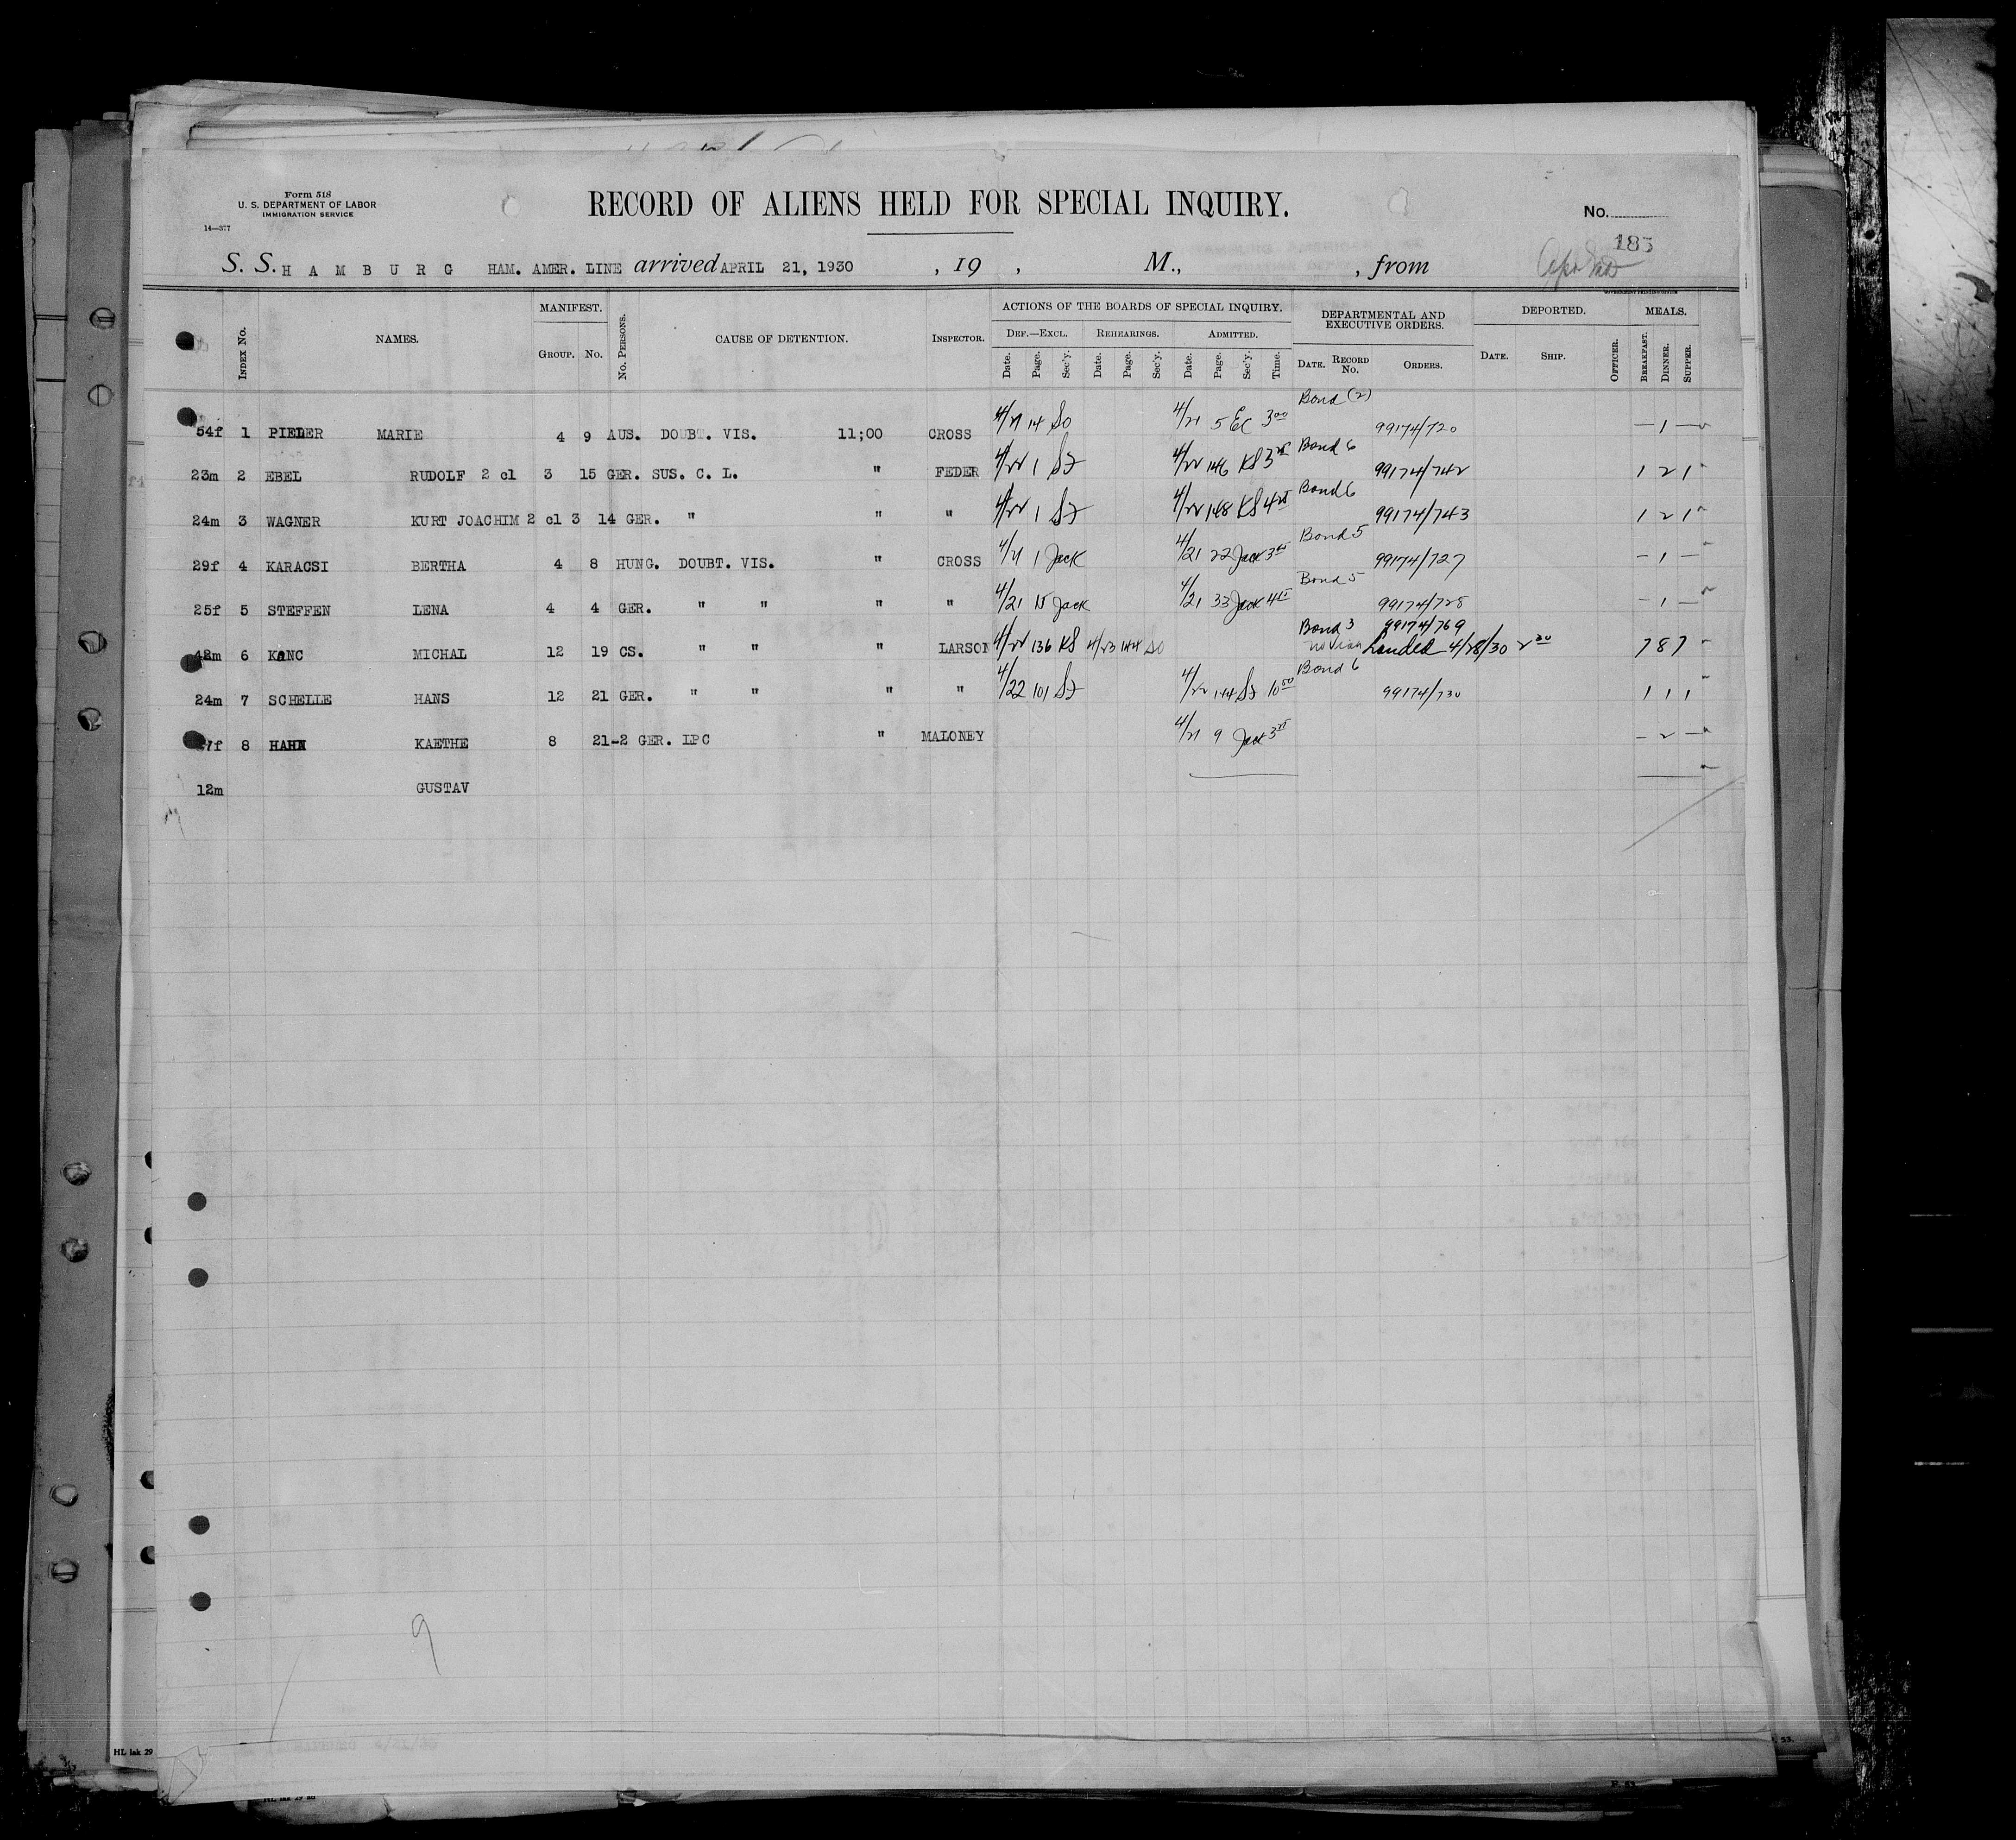 Form 518
U. S. DEPARTMENT OF LABOR
IMMIGRATION SERVICE
14—377
RECORD OF ALIENS HELD FOR SPECIAL INQUIRY.
No.
185
S. S. HAMBURG HAM. AMER. LINE arrived APRIL 21, 1930 , 19 , M., , from
GOVERNMENT PRINTING OFFICE
INDEX No. NAMES. MANIFEST. GROUP. No. No. PERSONS. CAUSE OF DETENTION. INSPECTOR. ACTIONS OF THE BOARDS OF SPECIAL INQUIRY. DEF.—EXCL. REHEARINGS. ADMITTED. DEPARTMENTAL AND EXECUTIVE ORDERS. DEPORTED. MEALS.
Date. Page. Sec'y. Date. Page. Sec'y. Date. Page. Sec'y. Time. DATE. RECORD No. ORDERS. DATE. SHIP. OFFICER. BREAKFAST. DINNER. SUPPER.
Bond (2)
54f 1 PIELER MARIE 4 9 AUS. DOUBT. VIS. 11;00 CROSS 4/21 14 So 4/21 5 EC 3 00 99174/720 — 1 —
Bond 6
23m 2 EBEL RUDOLF 2 cl 3 15 GER. SUS. C. L. " FEDER 4/22 1 4/22 146 KS 3 99174/742 1 2 1
Bond 6
24m 3 WAGNER KURT JOACHIM 2 cl 3 14 GER. " " " 4/22 1 4/22 148 KS 4 99174/743 1 2 1
Bond 5
29f 4 KARACSI BERTHA 4 8 HUNG. DOUBT. VIS. " CROSS 4/21 1 Jack 4/21 22 Jack 3 99174/727 — 1 —
Bond 5
25f 5 STEFFEN LENA 4 4 GER. " " " " 4/21 15 Jack 4/21 33 Jack 4 99174/728 — 1 —
Bond 3 99174/769
48m 6 KANC MICHAL 12 19 CS. " " " LARSON 4/22 136 KS 4/23 144 So Landed 4/28/30 2 30 7 8 7
Bond 6
24m 7 SCHELLE HANS 12 21 GER. " " " " 4/22 101 4/22 144 10 50 99174/730 1 1 1
7f 8 HAHN KAETHE 8 21-2 GER. LPC " MALONEY 4/21 9 Jack 3 — 2 —
12m GUSTAV
9
HL lak 29
53.